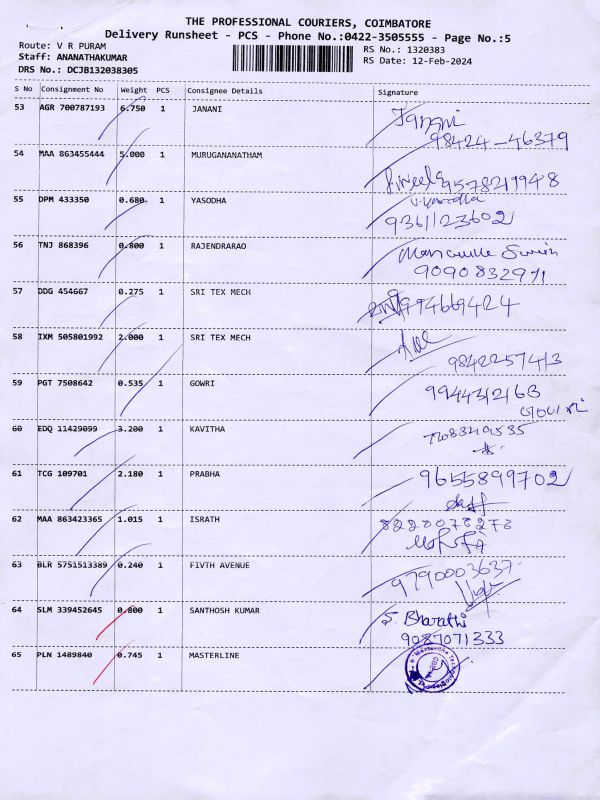 THE PROFESSIONAL COURIERS, COIMBATORE
Delivery Runsheet - PCS - Phone No.:0422-3505555 - Page No.:5
Route: V R PURAM
RS No.: 1320383
Staff: ANANATHAKUMAR
RS Date: 12-Feb-2024
DRS No.: DCJB132038305
S No Consignment No Weight PCS Consignee Details Signature
53 AGR 700787193 6.750 1 JANANI Janani
98424-46379
54 MAA 863455444 5.000 1 MURUGANANATHAM
9578219948
55 DPM 433350 0.680 1 YASODHA V. Yasodha
9361123602
56 TNJ 868396 0.800 1 RAJENDRARAO
9090832971
57 DDG 454667 0.275 1 SRI TEX MECH 994669424
58 IXM 505801992 2.000 1 SRI TEX MECH
9842257413
59 PGT 7508642 0.535 1 GOWRI 9944312163
Gowri
60 EDQ 11429099 3.200 1 KAVITHA 7708349535
61 TCG 109701 2.180 1 PRABHA 9655899702
62 MAA 863423365 1.015 1 ISRATH 8220078278
63 BLR 5751513389 0.240 1 FIVTH AVENUE 9790003637
64 SLM 339452645 0.800 1 SANTHOSH KUMAR S. Bharathi
9087071333
65 PLN 1489840 0.745 1 MASTERLINE Masterline